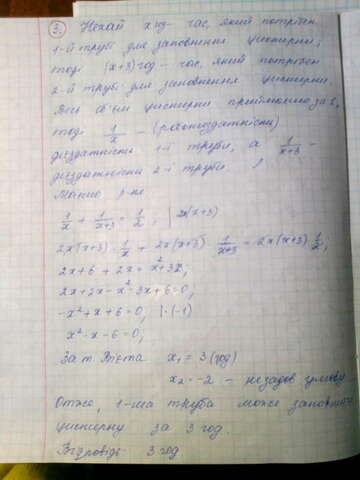 3. Нехай x год - час, який потрібен
1-й трубі для заповнення цистерни,
тоді (x+3) год - час, який потрібен
2-й трубі для заповнення цистерни.
Весь об'єм цистерни приймаємо за 1,
тоді 1/x -
1-й труби, а 1/(x+3) -
2-ї труби.
Маємо р-ня
1/x + 1/(x+3) = 1/2; | 2x(x+3)
2x(x+3) · 1/x + 2x(x+3) · 1/(x+3) = 2x(x+3) · 1/2;
2x+6+2x = x²+3x;
2x+2x-x²-3x+6=0,
-x²+x+6=0, |·(-1)
x²-x-6=0;
За т. Вієта x₁ = 3 (год)
x₂ = -2 - незадов. умову
Отже, 1-ша труба може заповнити
цистерну за 3 год.
Відповідь: 3 год